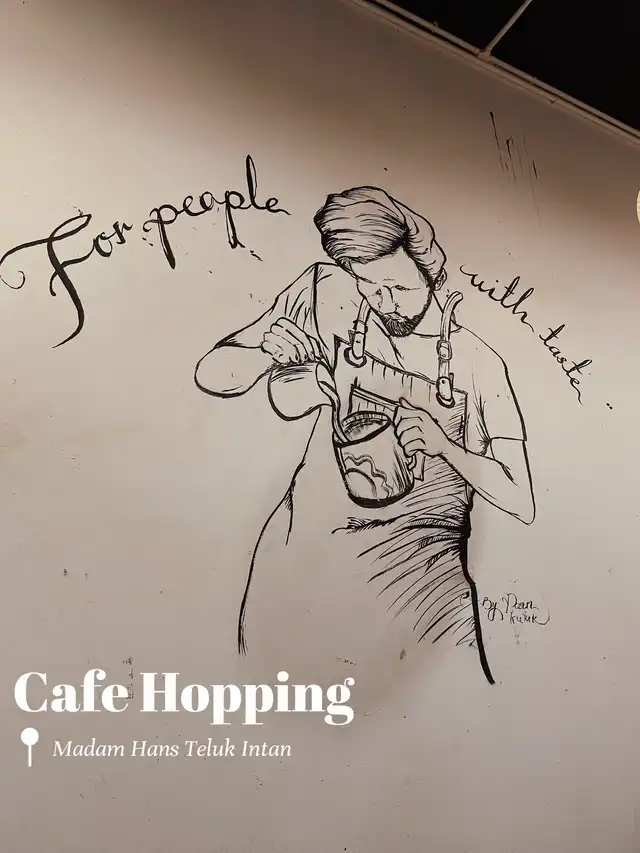 For people
with taste..
By Dean
Cafe Hopping
Madam Hans Teluk Intan